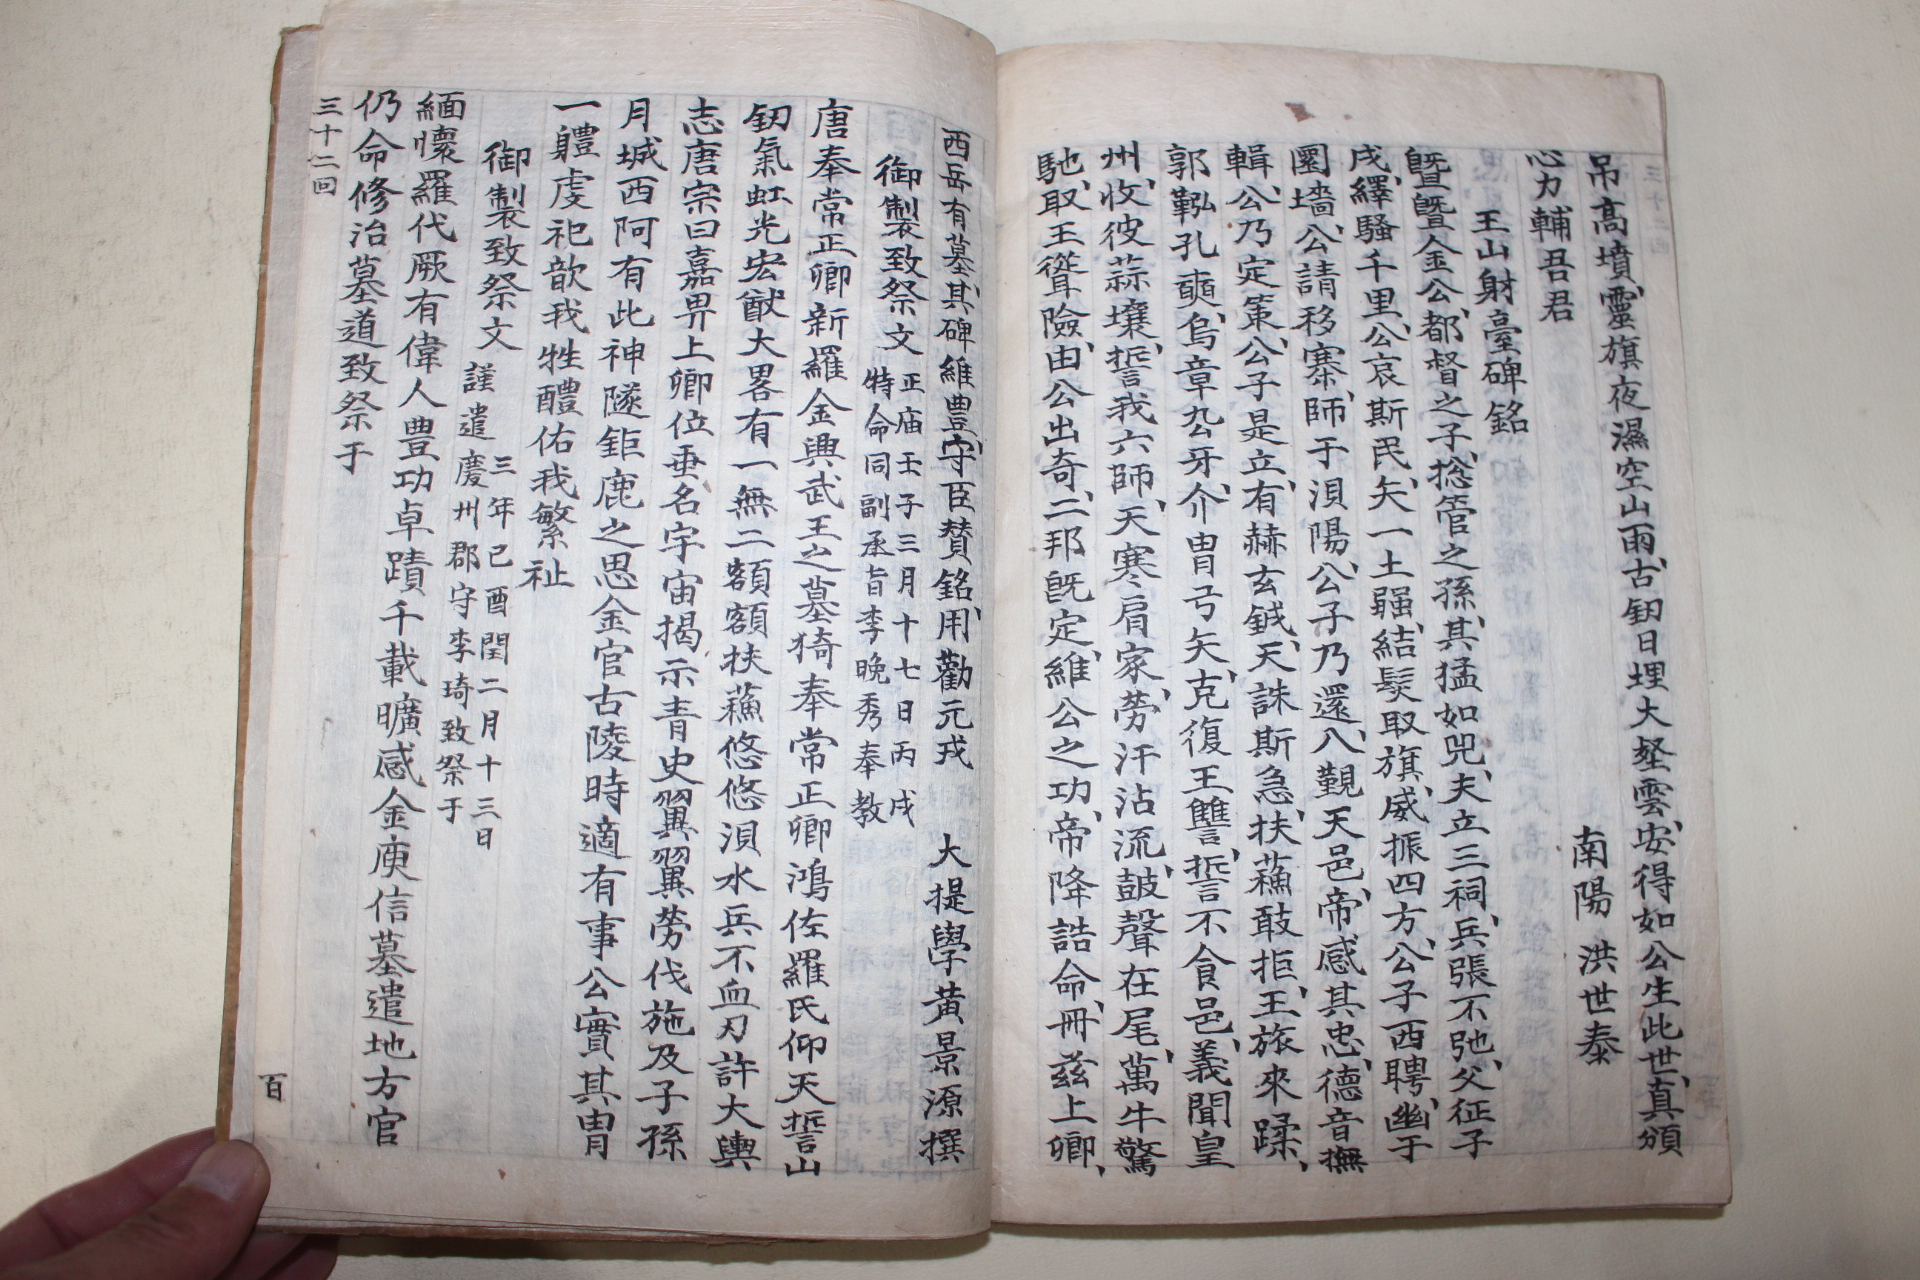 吊高墳靈旗夜濕空山雨古釰日埋大壑雲安得如公生此世真頒
心力輔吾君
南陽洪世泰
王山射臺碑銘
曁曁金公都督之子捴管之孫其猛如兕夫立三祠兵張不弛父征子
戍繹騷千里公哀斯民矢一土強結髮取旗威振四方公子西聘幽于
圉墻公請移寨師于浿陽公子乃還入覲天邑帝感其忠德音撫
輯公乃定策公子是立有赫玄鉞天誅斯急扶蘓敢拒王旅來蹂
郭鞹孔奭烏章公牙介冑弓矢克復王讐誓不食邑義聞皇
州收彼蒜壤誓我六師天寒肩家勞汗沾流鼓聲在尾萬牛驚
馳取王聳險由公出奇二邦旣定維公之功帝降誥命冊兹上卿
西岳有墓其碑維豊守臣賛銘用勸元戎 大提學黃景源撰
御製致祭文 正庙壬子三月十七日丙戌
特命同副承旨李晚秀奉教
唐奉常正卿新羅金興武王之墓猗奉常正卿鴻佐羅氏仰天誓山
釰氣虹光宏猷大畧有一無二額額扶蘓悠悠浿水兵不血刃許大輿
志唐宗曰嘉畀上卿位垂名宇宙揭示青史翼翼勞伐施及子孫
月城西阿有此神隧鉅鹿之思金官古陵時適有事公實其冑
一軆虔祀歆我牲醴佑我繁祉
御製致祭文 三年己酉閏二月十三日
謹遣慶州郡守李琦致祭于
緬懷羅代厥有偉人豊功卓蹟千載曠感金庾信墓遣地方官
仍命修治墓道致祭于
三十二回
百